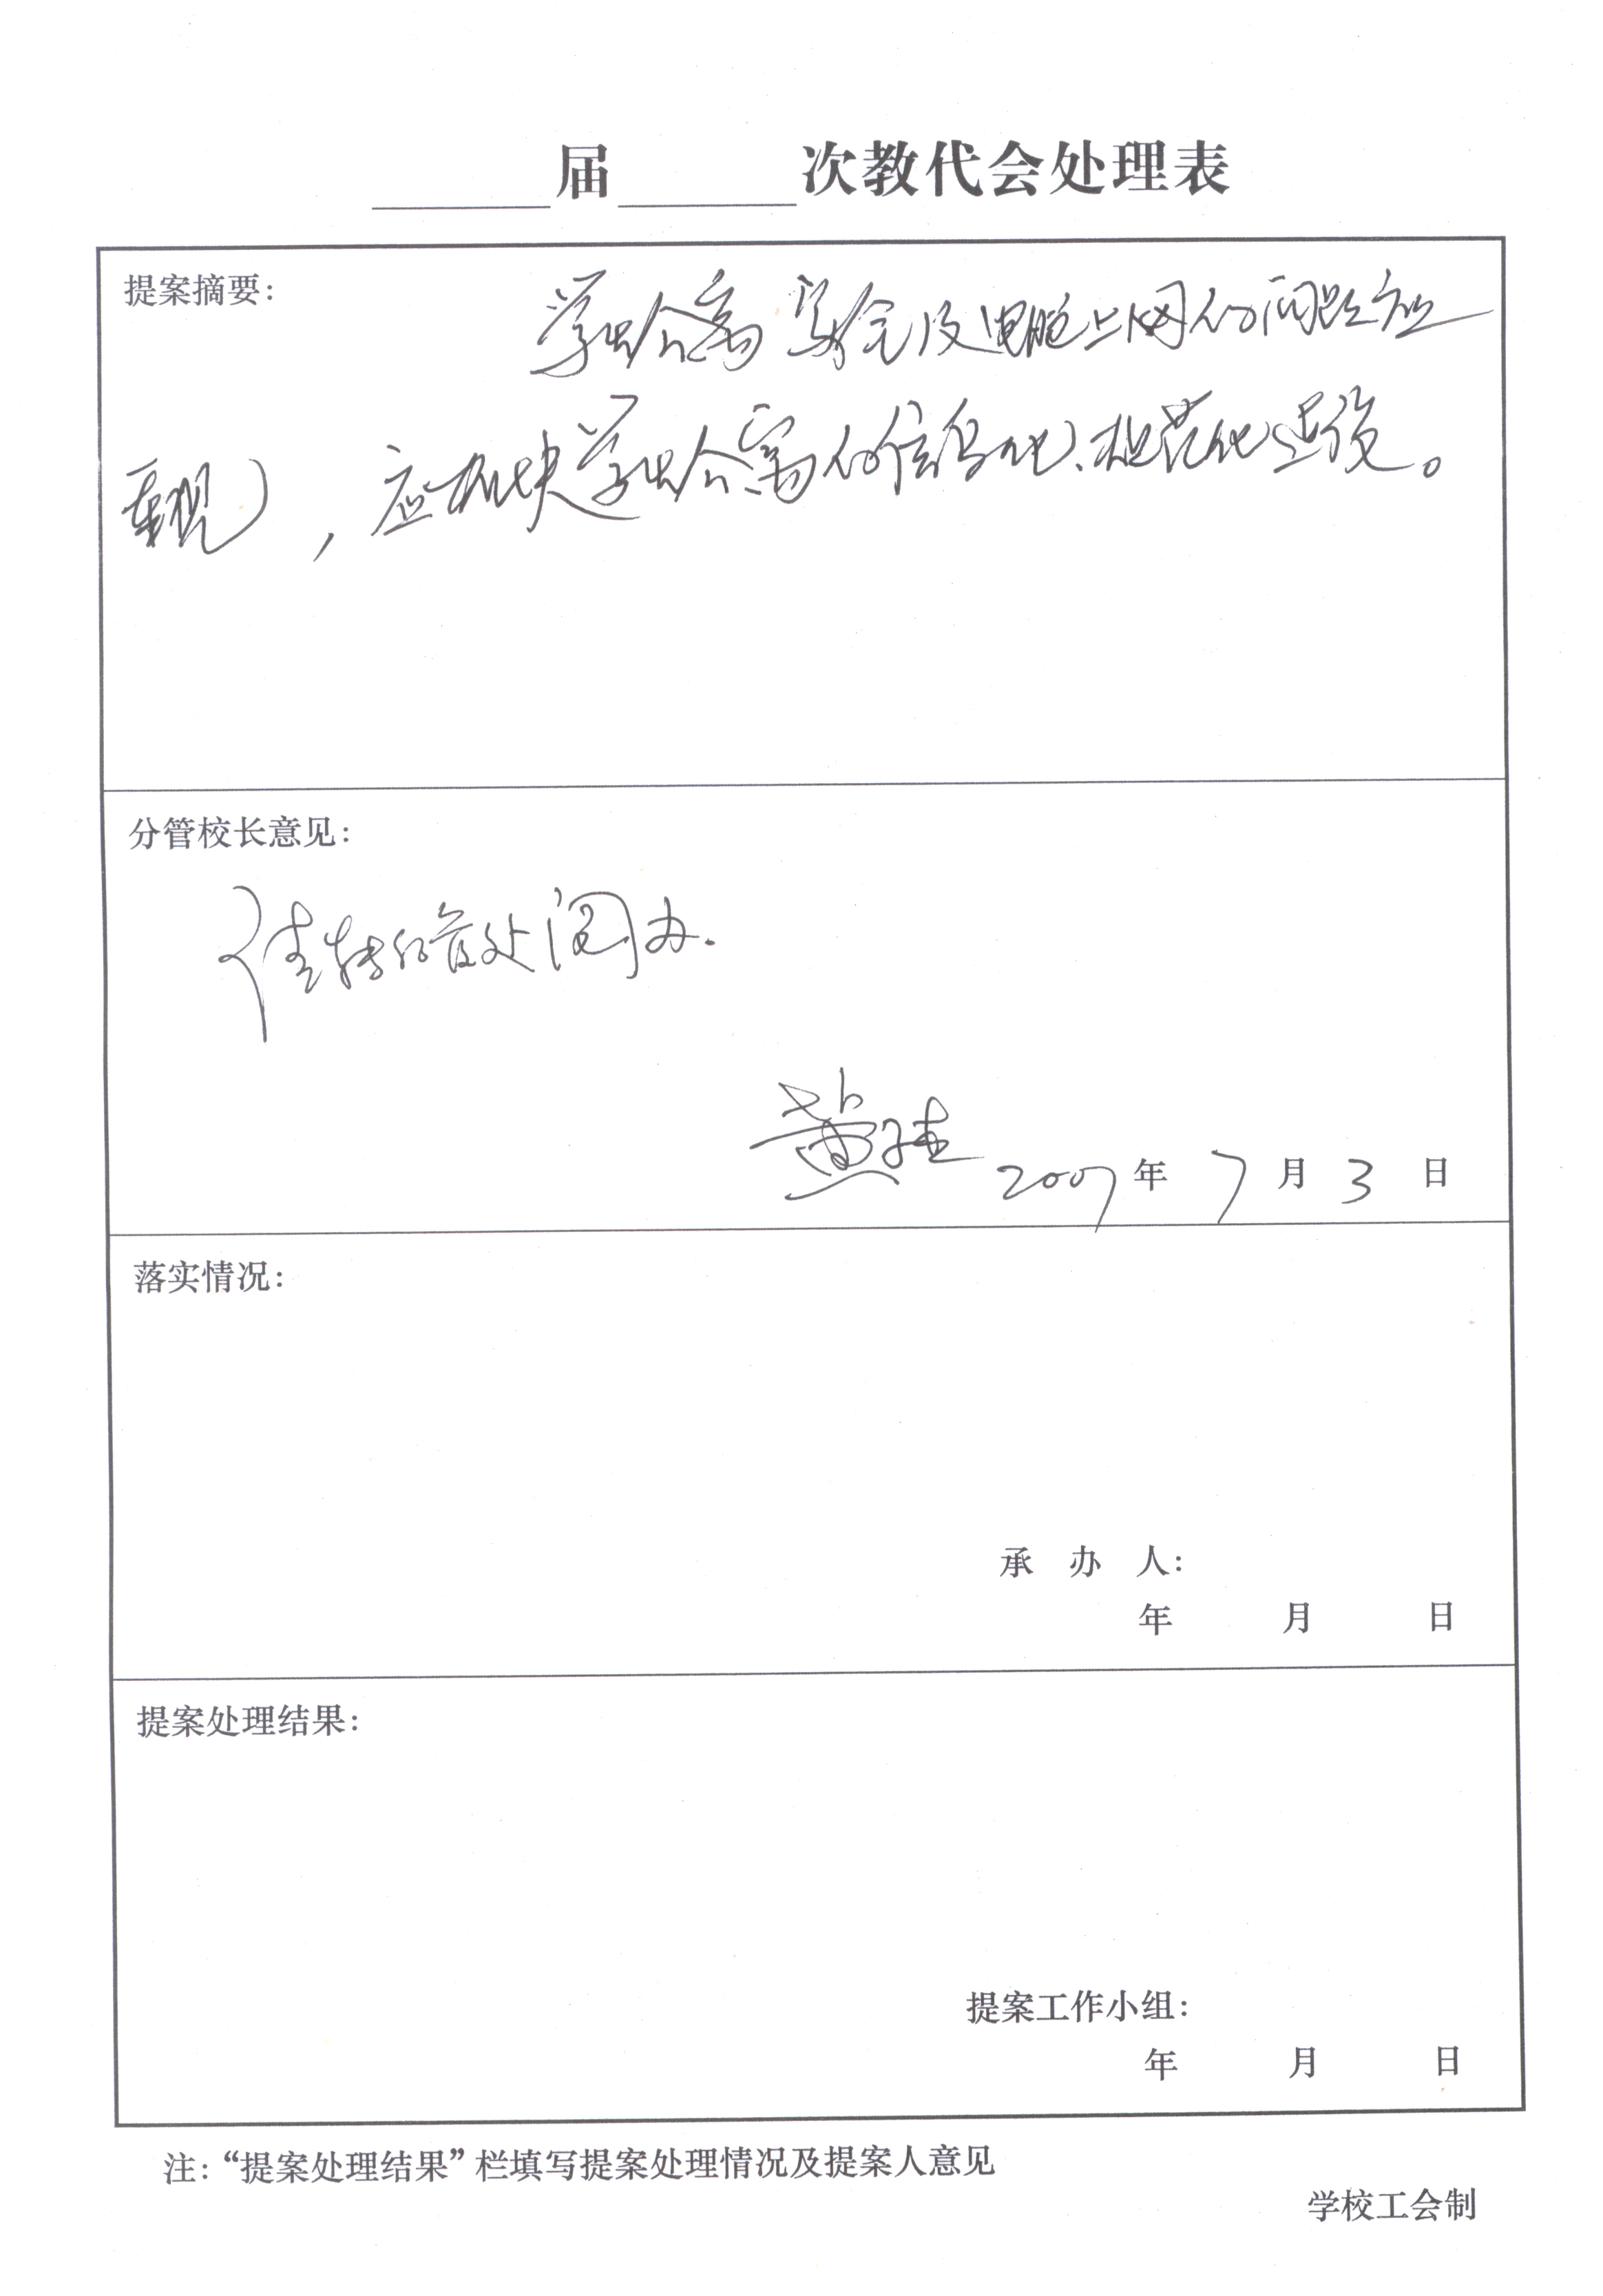 届 次教代会处理表
提案摘要：
学生公寓安全及电脑上网的问题应
重视，应加快学生公寓的信息化、规范化建设。
分管校长意见：
请转 处阅办.
黄 2007年7月3日
落实情况：
承 办 人：
年 月 日
提案处理结果：
提案工作小组：
年 月 日
注：“提案处理结果”栏填写提案处理情况及提案人意见
学校工会制